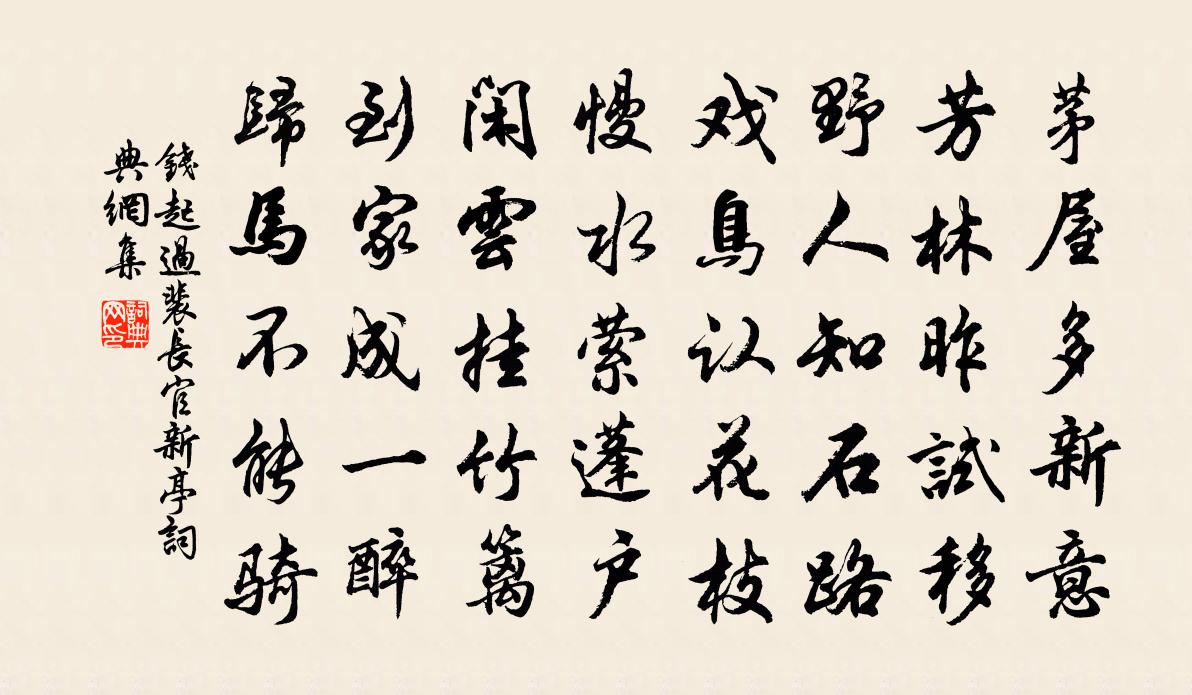 茅屋多新意
芳林昨試移
野人知石路
戏鳥认花枝
慢水萦蓬户
閑雲挂竹篱
到家成一醉
歸馬不能骑
錢起過裴長官新亭詞
典網集
詞典
网印